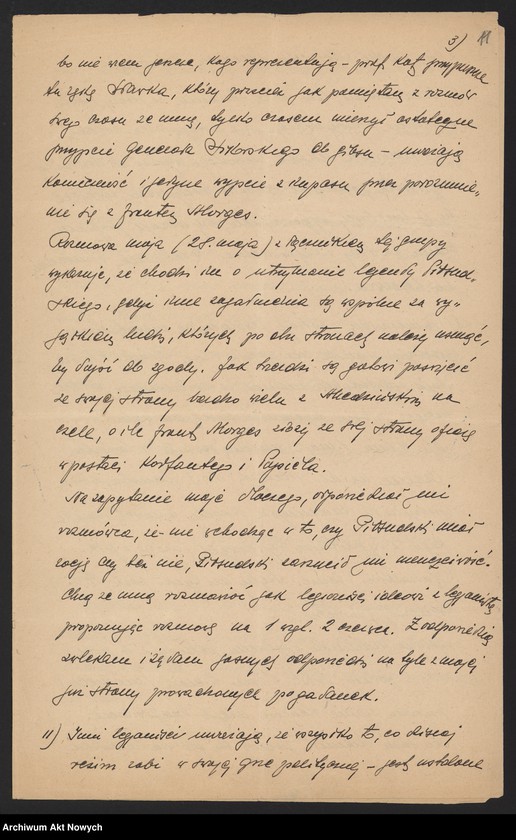 3) 11
bo nie wiem jeszcze, kogo reprezentują – prof. Kot przypuszcza
tu rękę Sławka, który przecież jak pamiętam z rozmów
swego czasu ze mną, tylko czasem mienił ostateczne
przyjście generała Sikorskiego do głosu – uważają
konieczność i jedyne wyjście z impasu przez porozumie-
nie się z frontem Morges.
Rozmowa moja (28. maja) z łącznikiem tej grupy
wykazuje, że chodzi im o utrzymanie legendy Piłsud-
skiego, gdyż inne zagadnienia są wspólne za wy-
jątkiem ludzi, których po obu stronach należy usunąć,
by dojść do zgody. Jak twierdzi są gotowi poświęcić
ze swojej strony bardzo wielu z Miedzińskim na
czele, o ile front Morges złoży ze swej strony ofiarę
w postaci Korfantego i Popiela.
Na zapytanie moje dlaczego, odpowiedział mi
rozmówca, że – nie wchodząc w to, czy Piłsudski miał
rację czy też nie, Piłsudski zarzucił im nieuczciwość.
Chcą ze mną rozmawiać jak legioniści ideowi z legionistą
proponując rozmowę na 1 wzgl. 2 czerwca. Z odpowiedzią
zwlekam i żądam jasnych odpowiedzi na tyle z mojej
już strony prowadzonych pogadanek.
11) Inni legioniści uważają, że wszystko to, co dzisiaj
reżim robi w swojej grze politycznej – jest ustalone
Archiwum Akt Nowych